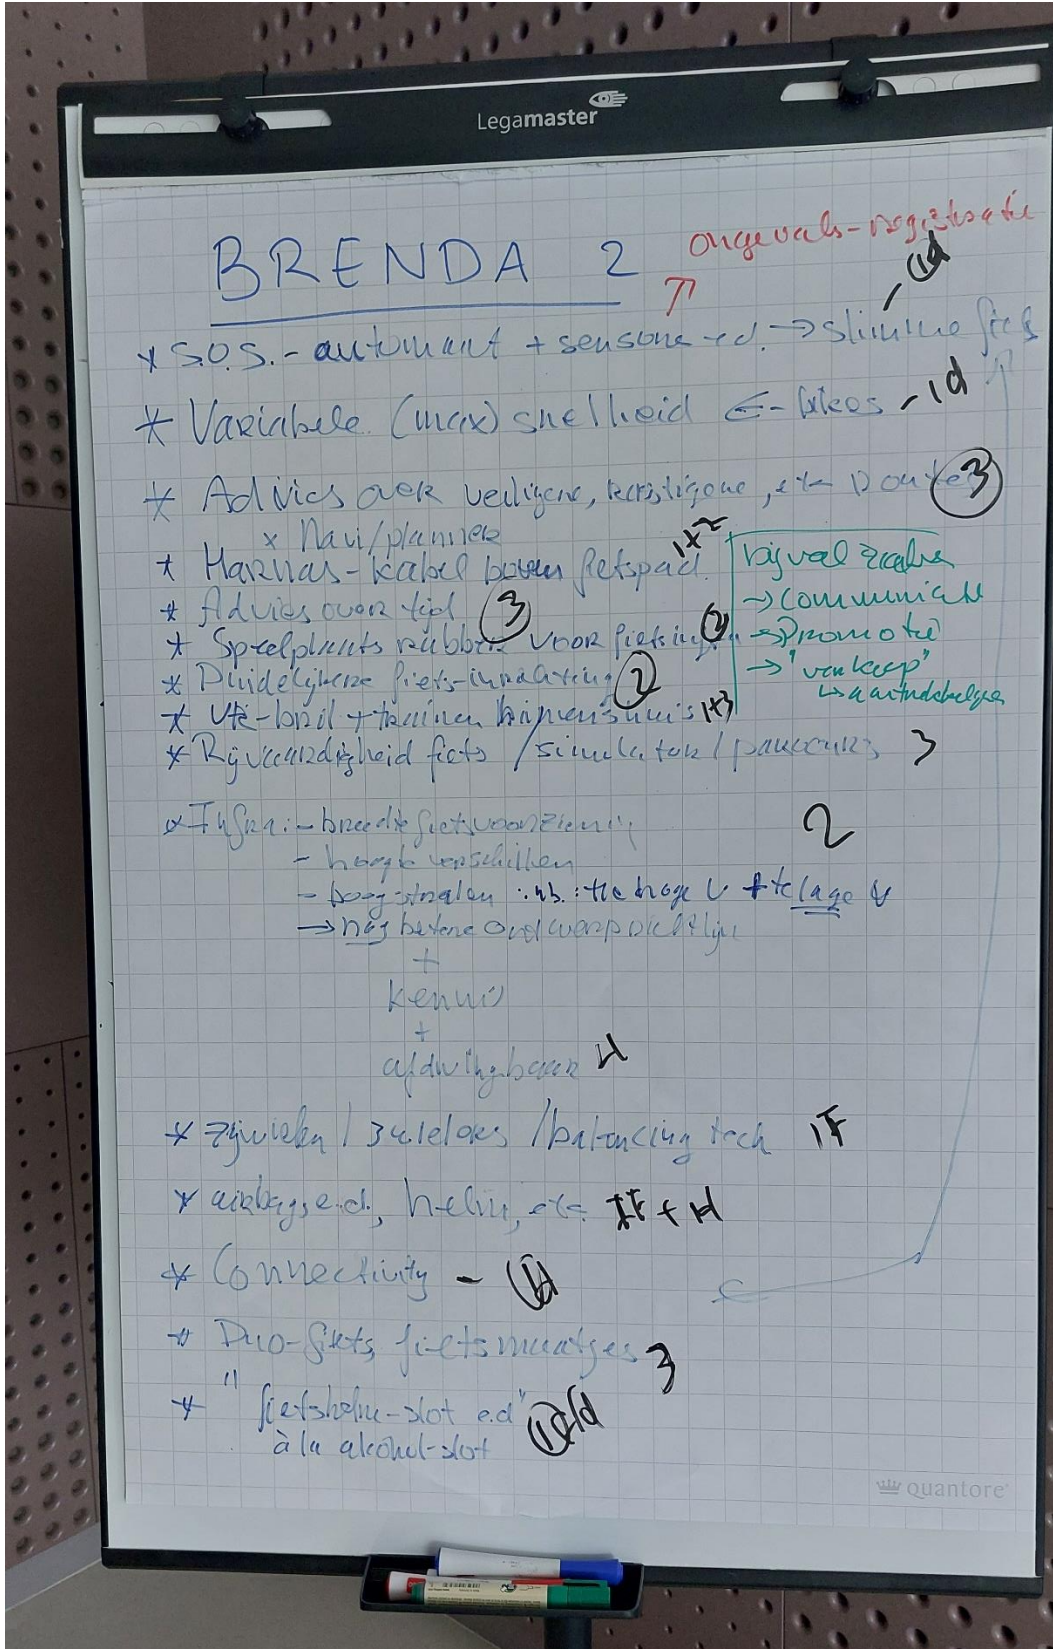 Legamaster
BRENDA 2
ongevals-registratie
* S.O.S.- automaat + sensoren e.d. → slimme fiets
1d
* Variabele (max) snelheid E-bikes - 1d
* Advies over veiligere, rustigere, etc route 3
x Navi/planner
* Harnas-kabel boven fietspad 1+2
* Advies over tijd 3
* Speelplaats rubber voor fietsinfra 2
* Duidelijkere fiets-inrichting 2
* VR-bril + trainen 1+3
* Rijvaardigheid fiets / simulator / parcours 3
bij veel zaken
→ communicatie
→ Promotie
→ "verkoop"
* Infra: - breedte fietsvoorziening 2
- hoogte verschillen
- boogstralen : nb. : te hoge v + te lage v
→ nog betere ontwerprichtlijn
+
kennis
+
afdwingbaar
* zijwielen / 3wielers / balancing tech 1F
* airbags e.d., helm, etc. 1F + 1d
* Connectivity - 1d
* Duo-fiets, fietsmaatjes 3
* "fietshelm-slot e.d" 1d
à la alcohol-slot
quantore